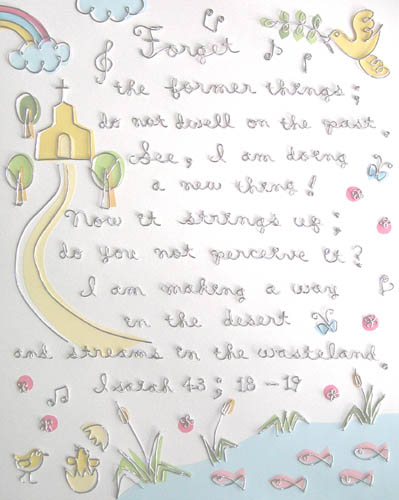 Forget
the former things;
do not dwell on the past.
See, I am doing
a new thing!
Now it strings up;
do you not perceive it?
I am making a way
in the desert
and streams in the wasteland.
Isaiah 43; 18-19